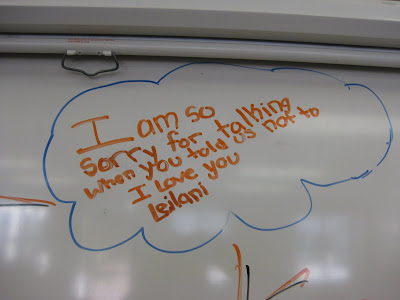 I am so
sorry for talking
when you told us not to
I Love you
Leilani